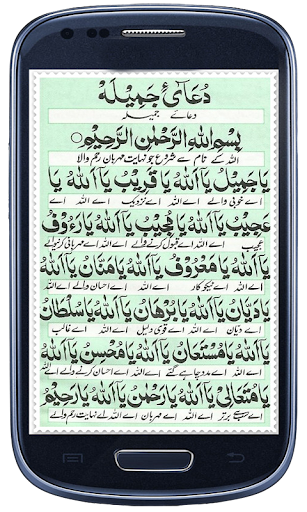 دُعَائے جَمِيْلَهْ
دعائے جمیلہ
بِسْمِ اللهِ الرَّحْمٰنِ الرَّحِيْمِ
اللہ کے نام سے شروع جو نہایت مہربان رحم والا
يَا جَمِيْلُ يَا اَللهُ يَا قَرِيْبُ يَا اَللهُ يَا
اے خوبی والے اے اللہ اے نزدیک اے اللہ اے
عَجِيْبُ يَا اَللهُ يَا مُجِيْبُ يَا اَللهُ يَا رَءُوْفُ
عجیب اے اللہ اے قبول کرنے والے اے اللہ اے مہربانی کرنیوالے
يَا اَللهُ يَا مَعْرُوْفُ يَا اَللهُ يَا مَنَّانُ يَا اَللهُ
اے اللہ اے نیکوکار اے اللہ اے احسان والے اے اللہ
يَا دَيَّانُ يَا اَللهُ يَا بُرْهَانُ يَا اَللهُ يَا سُلْطَانُ
اے دیان اے اللہ اے قوی دلیل اے اللہ اے غالب
يَا اَللهُ يَا مُسْتَعَانُ يَا اَللهُ يَا مُحْسِنُ يَا اَللهُ
اے اللہ اے مدد چاہے گئے اے اللہ اے احسان کرنے والے اے اللہ
يَا مُتَعَالِىْ يَا اَللهُ يَا رَحْمٰنُ يَا اَللهُ يَا رَحِيْمُ
اے سب سے برتر اے اللہ اے مہربان اے اللہ اے نہایت رحم والے